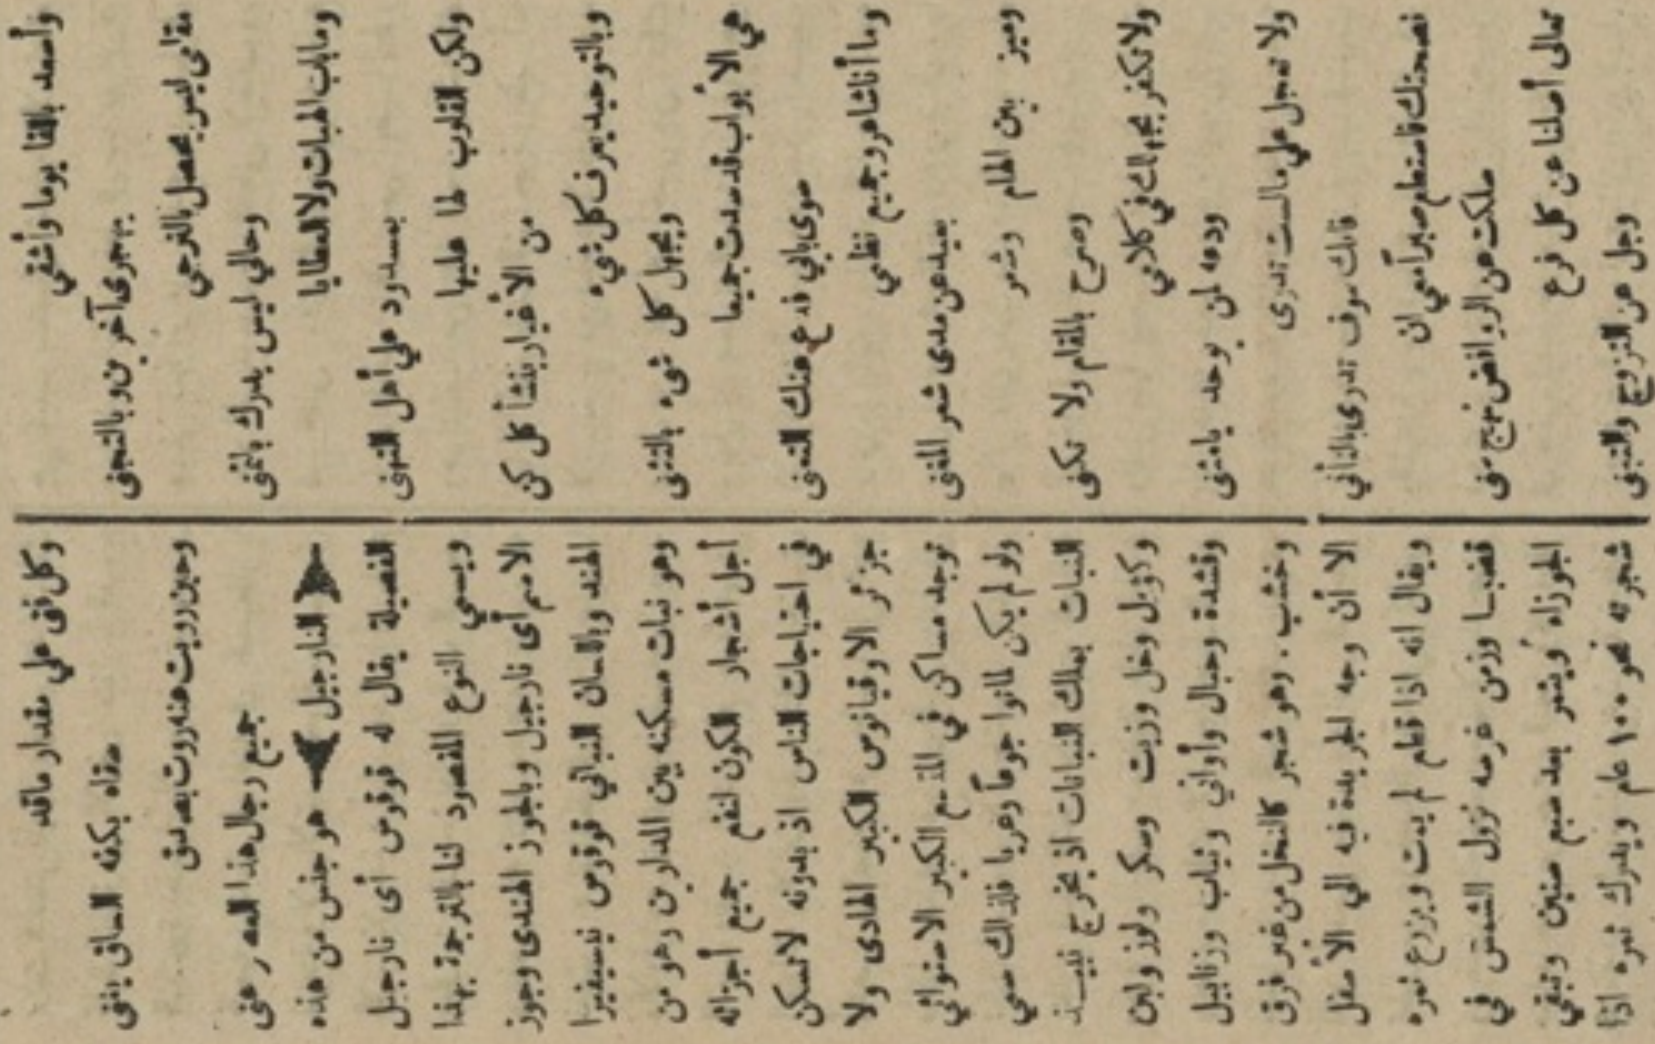 وأسعد بالقا يوما وأشقي
بهجرى آخرين وبالتجنى
مقامي ليس يحصل بالترجي
وحالي ليس يدرك بالتمنى
وما باب الهبات ولا العطايا
بمسدود علي أهل التهنى
ولكن القلوب لها عليها
من الاغيار ينشأ كل كن
وبالتوحيد يعرف كل شيء
ويجهل كل شيء بالتثنى
هي الأبواب قد سدت جميعا
سوى بابي فدع عنك التعنى
وما أنا شاعر وجميع نظمي
بعيد عن مدى شعر المغنى
وميز بين الهام وشعر
وصرح بالمقام ولا تكنى
ولا تكفر بجهلك في كلامي
ودعه لمن يوحد يامثنى
ولا تعجل علي مالست تدرى
فانك سوف تدرى بالتأني
نصحتك فاستطع صبرا ان
سلكت عن الروافض نهج سنى
تعالى أصلنا عن كل فرع
وجل عن التزوج والتبنى
وكل فتى علي مقدار ماقد
سقاه بكفه الساقى يغنى
وحين رويت عنه رويت بصدق
جميع رجال هذا العصر عنى
النارجيل هو جنس من هذه
الفصيلة يقال له قوقوس أى نارجيل
ويسمي النوع المقصود لنا بالترجمة بهذا
الاسم أى نارجيل وبالجوز الهندى وجوز
الهند وباللسان النباتي قوقوس نسيفيرا
وهو نبات مسكنه بين المدارين وهو من
أجل أشجار الكون لنفع جميع أجزائه
في احتياجات الناس اذ بدونه لاتمسكن
جزائر الاوقيانوس الكبير الهادى ولا
توجد مساكن في المتسع الكبير الاستوائي
ولو لم يكن لماتوا جوعا وعريا فلذلك سمي
النبات بملك النباتات اذ يخرج نبيــذ
وكؤل وخل وزيت وسكر ولوز ولبن
وقشدة وحبال وأواني وثياب وزنابيل
وخشب. وهو شجر كالنخل من غير فرق
الا أن وجه الجريدة فيه الي الأسفل
ويقال انه اذا قطع لم يمت ويزرع ثمره
قضبا وزمن غرسه نزول الشمس في
الجوزاء ويثمر بعد سبع سنين وتبقي
شجرته نحو ١٠٠ عام ويدرك ثمره اذا